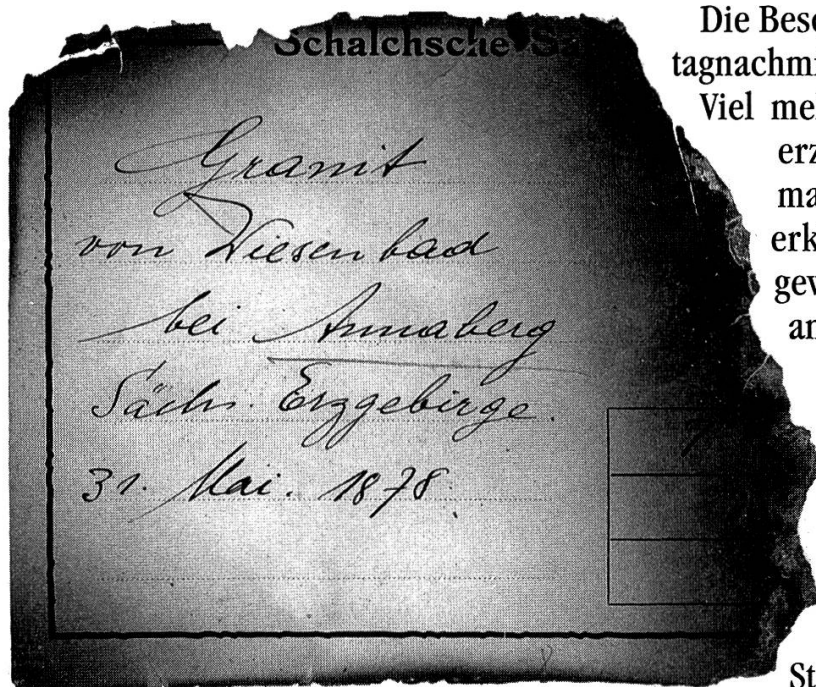 Schalchsche
Granit
von Wiesenbad
bei Annaberg
Sächs. Erzgebirge.
31. Mai. 1878.
Die Besc
tagnachmi
Viel mel
erz
ma
erk
gev
an
St